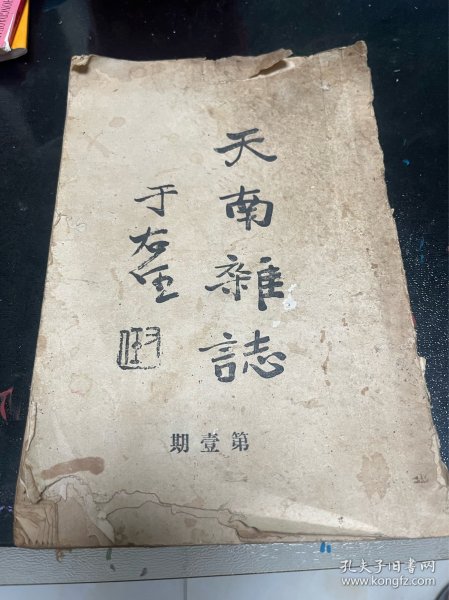 天南雜誌
于右任
第壹期
孔夫子旧书网
www.kongfz.com